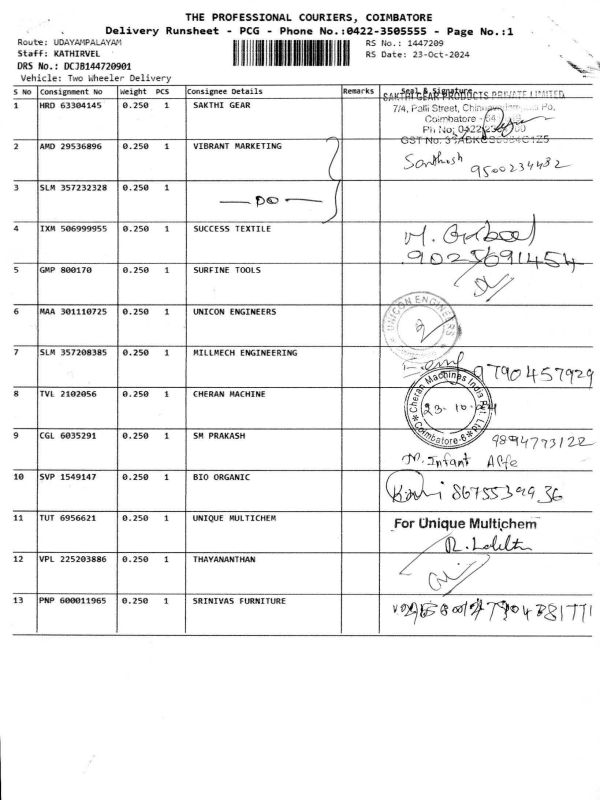 THE PROFESSIONAL COURIERS, COIMBATORE
Delivery Runsheet - PCG - Phone No.:0422-3505555 - Page No.:1
Route: UDAYAMPALAYAM RS No.: 1447209
Staff: KATHIRVEL RS Date: 23-Oct-2024
DRS No.: DCJB144720901
Vehicle: Two Wheeler Delivery
S No Consignment No Weight PCS Consignee Details Remarks Seal & Signature
SAKTHI GEAR PRODUCTS PRIVATE LIMITED
1 HRD 63304145 0.250 1 SAKTHI GEAR 7/4, Palli Street,
Coimbatore
Ph No: 0422
GST No:
2 AMD 29536896 0.250 1 VIBRANT MARKETING Santhosh 9500234432
3 SLM 357232328 0.250 1 - DO -
4 IXM 506999955 0.250 1 SUCCESS TEXTILE M.
9025691454
5 GMP 800170 0.250 1 SURFINE TOOLS
6 MAA 301110725 0.250 1 UNICON ENGINEERS UNICON ENGINEERS
7 SLM 357208385 0.250 1 MILLMECH ENGINEERING 9790457929
8 TVL 2102056 0.250 1 CHERAN MACHINE Cheran Machines India Pvt. Ltd. Coimbatore-6
23-10-24
9 CGL 6035291 0.250 1 SM PRAKASH 9894773122
M. Infant
10 SVP 1549147 0.250 1 BIO ORGANIC Ravi 8675539936
11 TUT 6956621 0.250 1 UNIQUE MULTICHEM For Unique Multichem
R. Lalitha
12 VPL 225203886 0.250 1 THAYANANTHAN
13 PNP 600011965 0.250 1 SRINIVAS FURNITURE